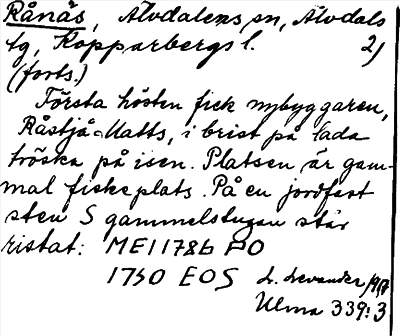 Rånäs, Älvdalens sn, Älvdals
tg, Kopparbergs l. 2)
(forts.)
Första hösten fick nybyggaren,
Råstjå-Matts, i brist på lada
tröska på isen. Platsen är gam-
mal fiskeplats. På en jordfast
sten S gammelstugan står
ristat: MEI 1786 PO
1750 EOS L. Levander 1917
Ulma 339:3